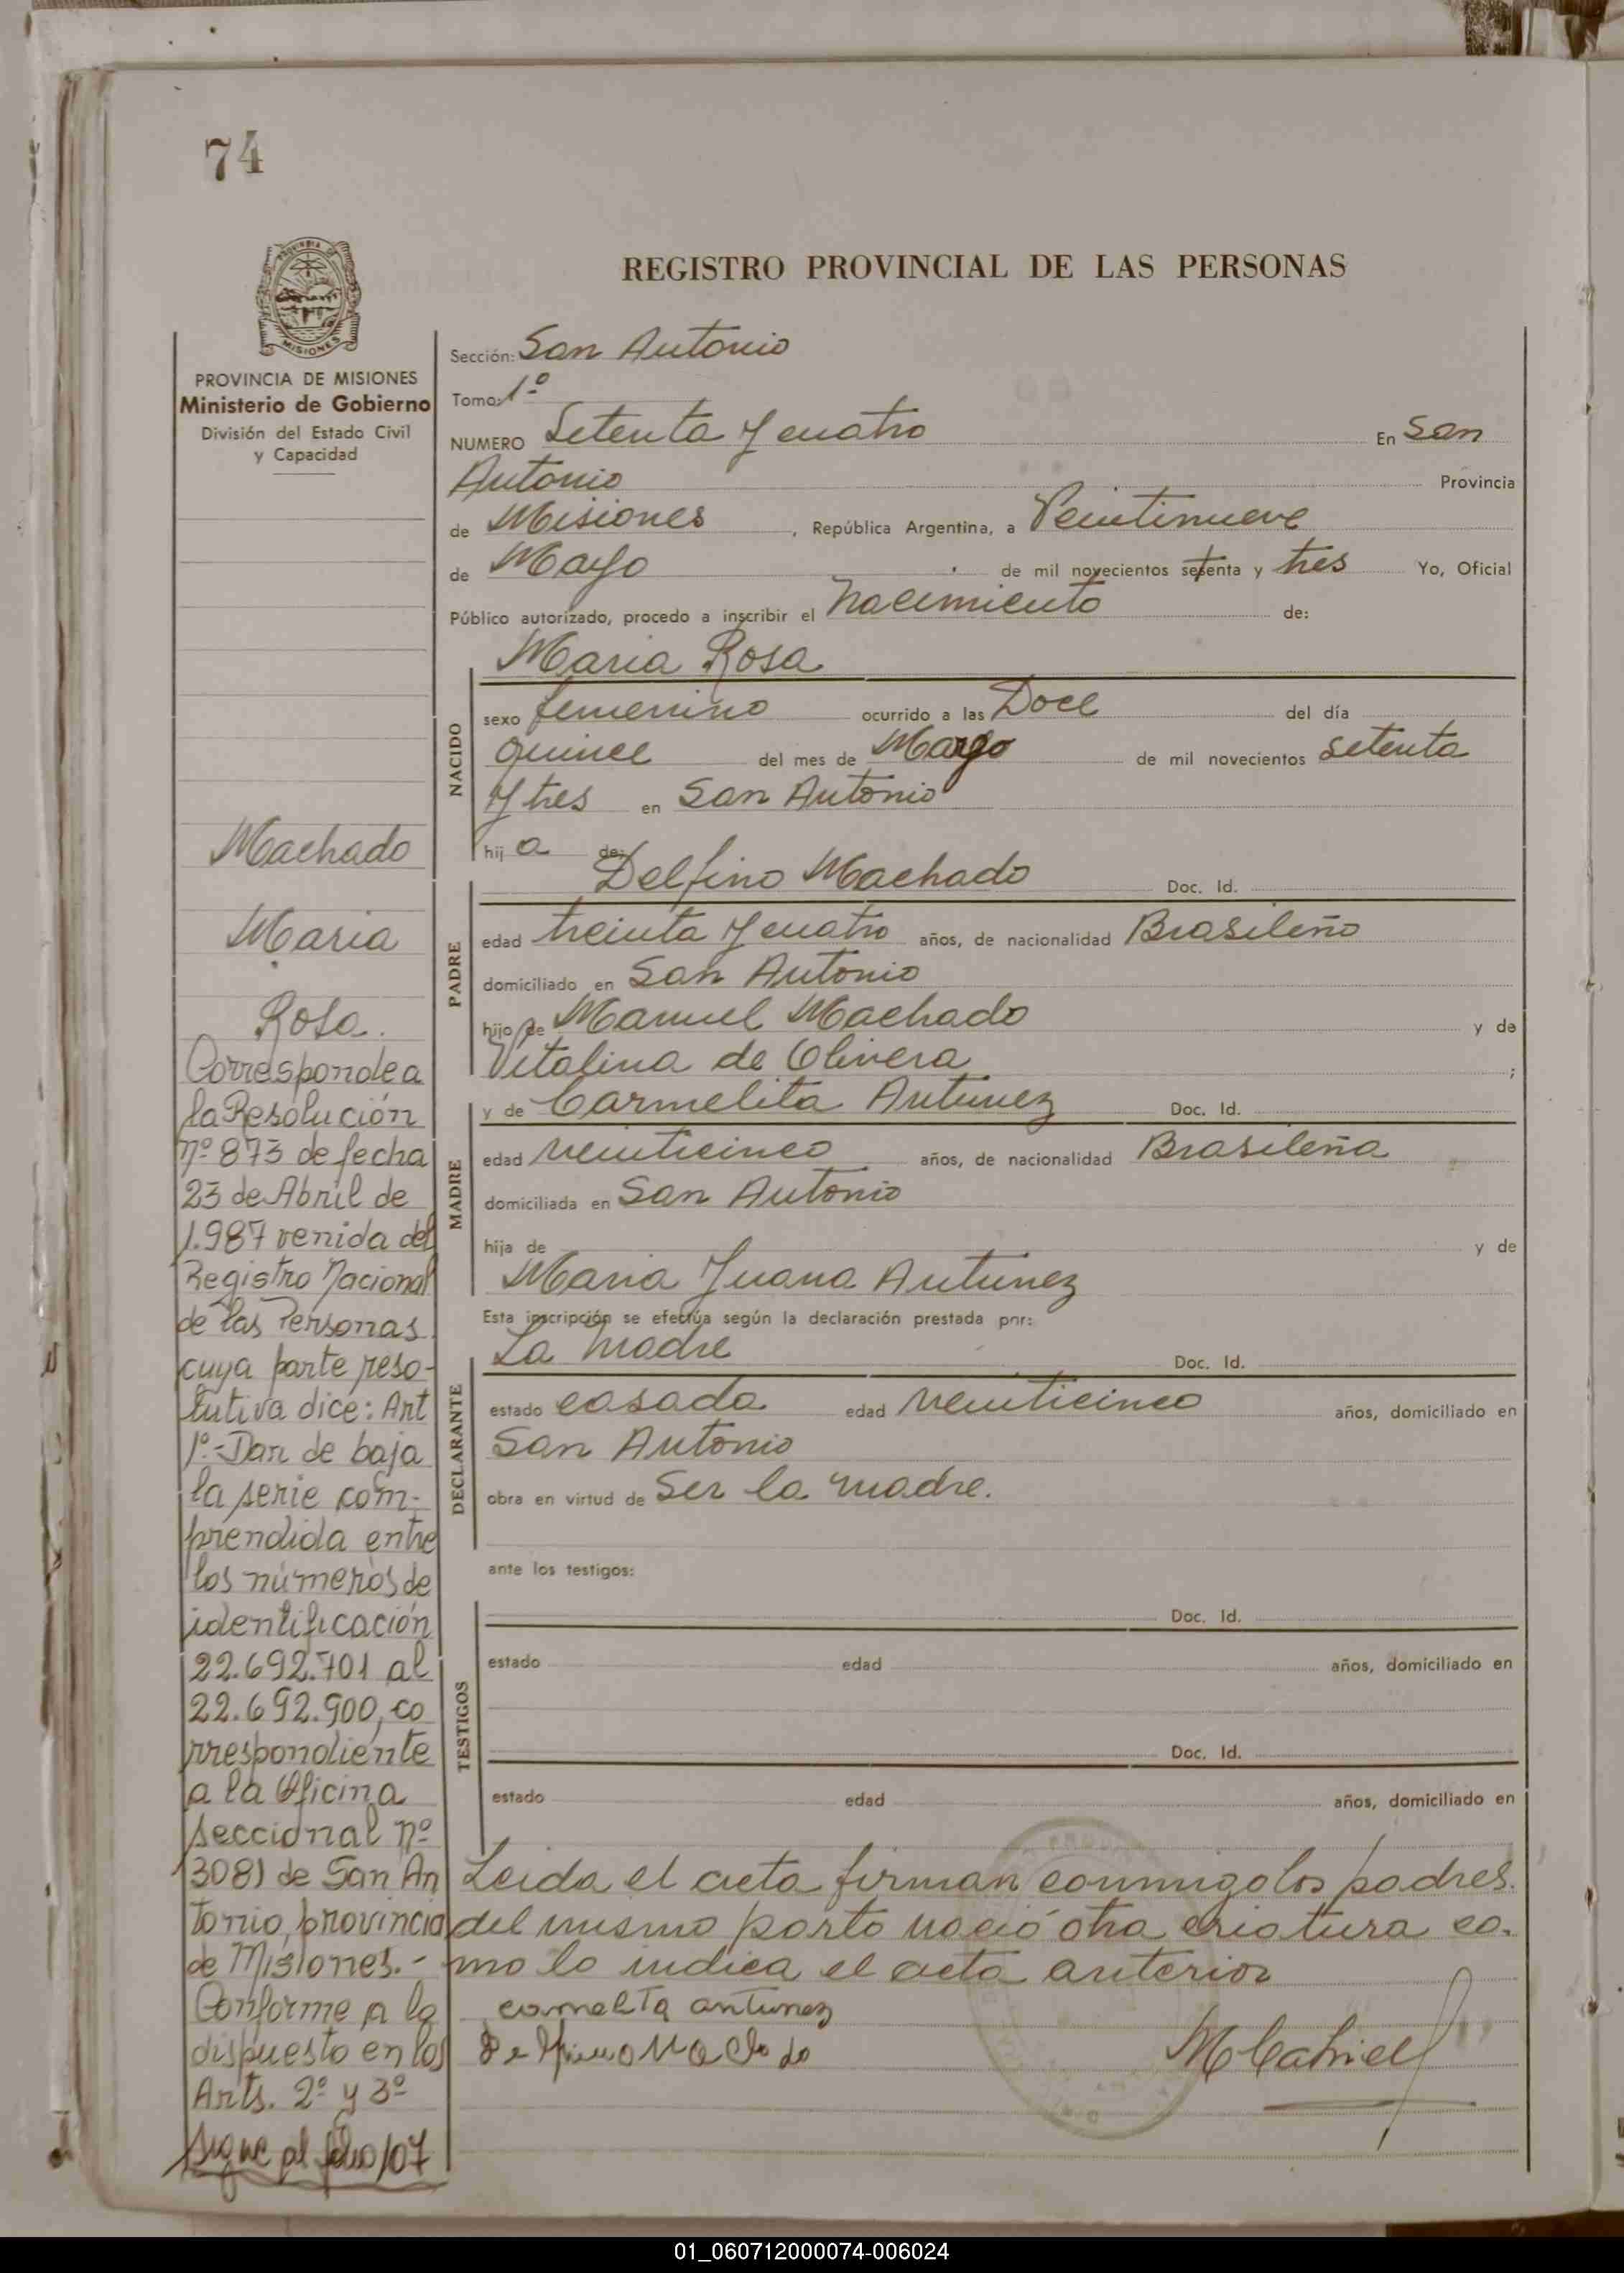 74
REGISTRO PROVINCIAL DE LAS PERSONAS
MISIONES
PROVINCIA DE MISIONES
Ministerio de Gobierno
División del Estado Civil
y Capacidad
Machado
Maria
Rosa.
Corresponde a
la Resolución
nº 873 de fecha
23 de Abril de
1.987 venida del
Registro Nacional
de las Personas
cuya parte reso-
lutiva dice: Art
1º.- Dar de baja
la serie com-
prendida entre
los números de
identificación
22.692.701 al
22.692.900, co
rrespondiente
a la Oficina
seccional nº
3081 de San An
tonio, provincia
de Misiones.-
Conforme a lo
dispuesto en los
Arts. 2º y 3º
Sigue al folio 107
Sección: San Antonio
Tomo: 1º
NUMERO Setenta y cuatro En San
Antonio Provincia
de Misiones, República Argentina, a Veintinueve
de Mayo de mil novecientos setenta y tres Yo, Oficial
Público autorizado, procedo a inscribir el nacimiento de:
Maria Rosa
NACIDO
sexo femenino ocurrido a las Doce del día
quince del mes de de mil novecientos setenta
y tres en San Antonio
hij a de:
PADRE
Delfino Machado Doc. Id.
edad treinta y cuatro años, de nacionalidad Brasileño
domiciliado en San Antonio
hijo de Manuel Machado y de
Vitalina de Olivera ;
MADRE
y de Carmelita Antunez Doc. Id.
edad veinticinco años, de nacionalidad Brasileña
domiciliada en San Antonio
hija de y de
Maria Juana Antunez
Esta inscripción se efectúa según la declaración prestada por:
DECLARANTE
La madre Doc. Id.
estado casada edad veinticinco años, domiciliado en
San Antonio
obra en virtud de Ser la madre.
ante los testigos:
TESTIGOS
Doc. Id.
estado edad años, domiciliado en
Doc. Id.
estado edad años, domiciliado en
Leida el acta firman conmigo los padres.
del mismo parto nació otra criatura co-
mo lo indica el acta anterior
carmelita antunez
Delfino Machado
01_060712000074-006024